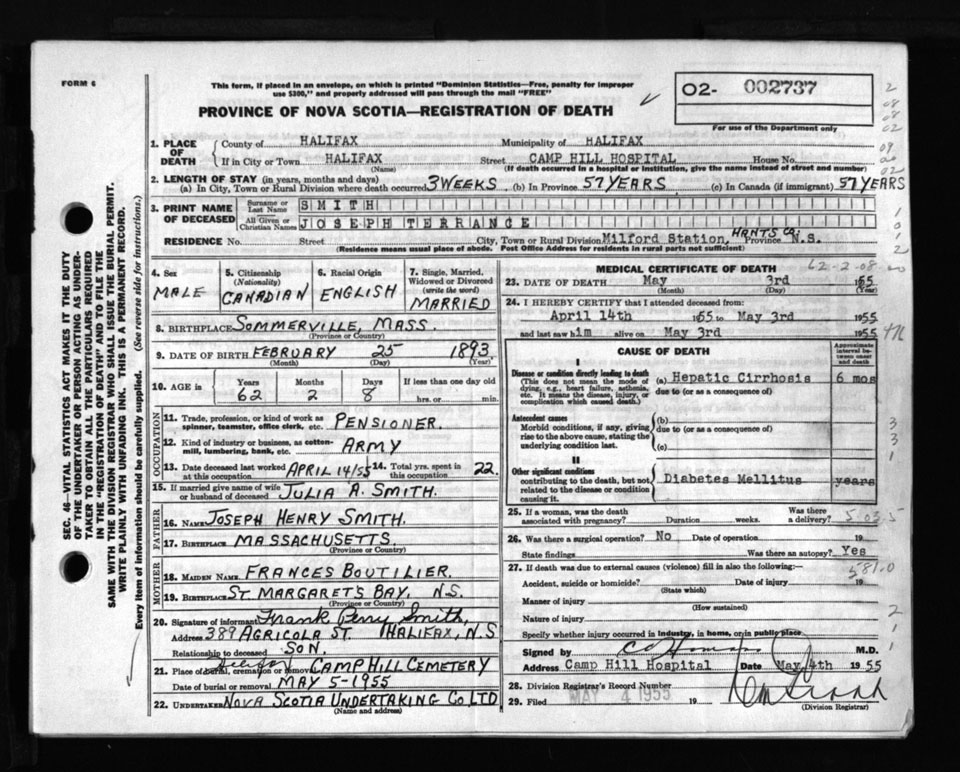 FORM 6
This form, if placed in an envelope, on which is printed "Dominion Statistics—Free, penalty for improper
use $300," and properly addressed will pass through the mail "FREE"
PROVINCE OF NOVA SCOTIA—REGISTRATION OF DEATH
02- 002737
For use of the Department only
1. PLACE OF DEATH
County of HALIFAX Municipality of HALIFAX
If in City or Town HALIFAX Street CAMP HILL HOSPITAL House No.
(Name) (If death occurred in a hospital or institution, give the name instead of street and number)
2. LENGTH OF STAY (in years, months and days)
(a) In City, Town or Rural Division where death occurred 3 WEEKS (b) In Province 57 YEARS (c) In Canada (if immigrant) 57 YEARS
3. PRINT NAME OF DECEASED
Surname or Last Name SMITH
All Given or Christian Names JOSEPH TERRANCE
RESIDENCE No. Street City, Town or Rural Division Milford Station, HANTS CO. Province N.S.
(Residence means usual place of abode. Post Office Address for residents in rural parts not sufficient)
4. Sex
MALE
5. Citizenship
(Nationality)
CANADIAN
6. Racial Origin
ENGLISH
7. Single, Married,
Widowed or Divorced
(write the word)
MARRIED
8. BIRTHPLACE SOMMERVILLE, MASS.
(Province or Country)
9. DATE OF BIRTH FEBRUARY 25 1893
(Month) (Day) (Year)
10. AGE in Years Months Days If less than one day old
62 2 8 hrs. or min.
OCCUPATION
11. Trade, profession, or kind of work as
spinner, teamster, office clerk, etc. PENSIONER.
12. Kind of industry or business, as cotton-
mill, lumbering, bank, etc. ARMY
13. Date deceased last worked
at this occupation APRIL 14/55
14. Total yrs. spent in
this occupation 22.
15. If married give name of wife
or husband of deceased JULIA A. SMITH.
FATHER
16. NAME JOSEPH HENRY SMITH.
17. BIRTHPLACE MASSACHUSETTS.
(Province or Country)
MOTHER
18. MAIDEN NAME FRANCES BOUTILIER.
19. BIRTHPLACE ST. MARGARETS BAY, N.S.
(Province or Country)
20. Signature of informant Frank Perry Smith,
Address 389 AGRICOLA ST. HALIFAX, N.S
Relationship to deceased SON.
21. Place of burial, cremation or removal CAMP HILL CEMETERY
Date of burial or removal MAY 5-1955
22. UNDERTAKER NOVA SCOTIA UNDERTAKING CO. LTD
(Name and address)
MEDICAL CERTIFICATE OF DEATH
62-2-08
23. DATE OF DEATH May 3rd 1955
(Month) (Day) (Year)
24. I HEREBY CERTIFY that I attended deceased from:
April 14th 1955 to May 3rd 1955
and last saw him alive on May 3rd 1955
CAUSE OF DEATH
Approximate
interval between
onset
and death
I
Disease or condition directly leading to death
(This does not mean the mode of
dying, e.g., heart failure, asthenia,
etc. It means the disease, injury, or
complication which caused death.)
(a) Hepatic Cirrhosis 6 mos
due to (or as a consequence of)
Antecedent causes
Morbid conditions, if any, giving
rise to the above cause, stating the
underlying condition last.
(b)
due to (or as a consequence of)
(c)
II
Other significant conditions
contributing to the death, but not
related to the disease or condition
causing it.
Diabetes Mellitus years
25. If a woman, was the death
associated with pregnancy? Duration weeks. Was there
a delivery?
5.03.5
26. Was there a surgical operation? No Date of operation 19
State findings Was there an autopsy? Yes
27. If death was due to external causes (violence) fill in also the following:—
581.0
Accident, suicide or homicide? Date of injury 19
(State which)
Manner of injury
(How sustained)
Nature of injury
Specify whether injury occurred in industry, in home, or in public place
Signed by M.D.
Address Camp Hill Hospital Date May 4th 1955
28. Division Registrar's Record Number
29. Filed MAY 4 1955 19
(Division Registrar)
SEC. 46—VITAL STATISTICS ACT MAKES IT THE DUTY
OF THE UNDERTAKER OR PERSON ACTING AS UNDER-
TAKER TO OBTAIN ALL THE PARTICULARS REQUIRED
IN THE "REGISTRATION OF DEATH" AND TO FILE THE
SAME WITH THE DIVISION REGISTRAR WHO SHALL ISSUE THE BURIAL PERMIT.
WRITE PLAINLY WITH UNFADING INK. THIS IS A PERMANENT RECORD.
Every item of information should be carefully supplied. (See reverse side for instructions.)